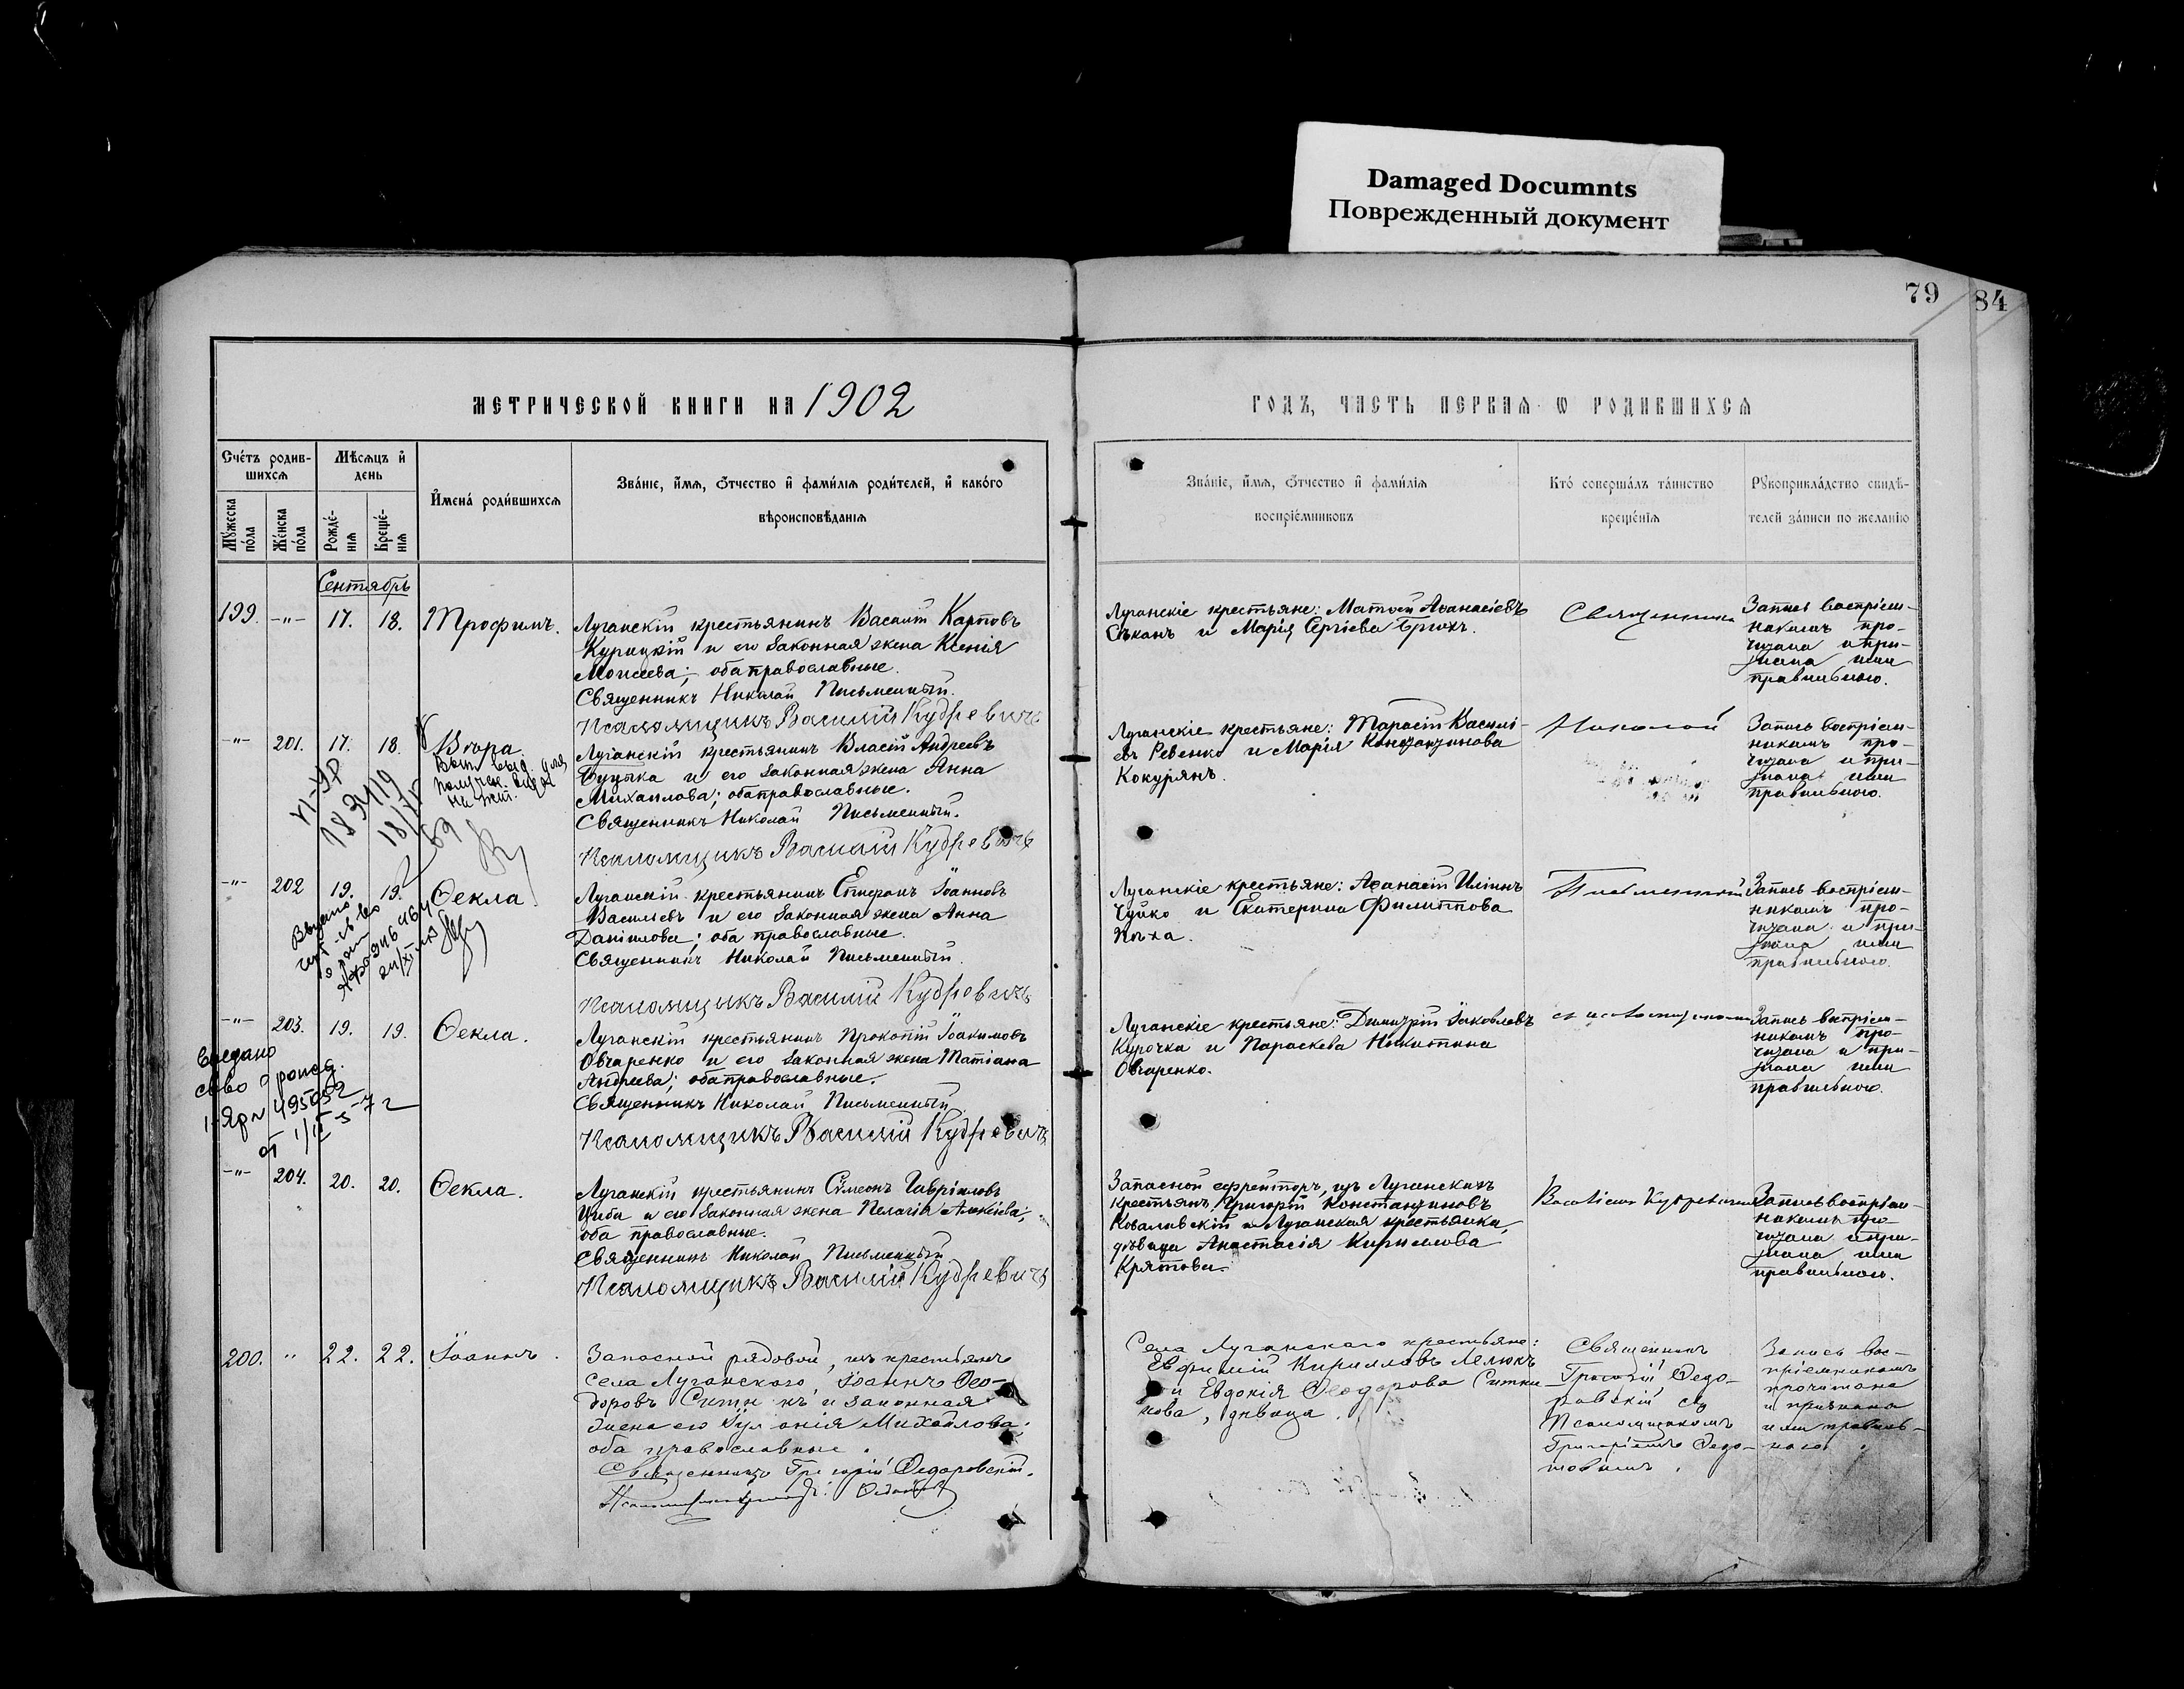 Damaged Documnts
Поврежденный документ
79
84
МЕТРИЧЕСКОЙ КНИГИ НА 1902
ГОДЪ, ЧАСТЬ ПЕРВАЯ Ѡ РОДИВШИХСЯ
Счетъ родив-
шихся
Мужеска
пола
Женска
пола
Мѣсяцъ и
день
Рожде-
нія
Креще-
нія
Имена родившихся
Званіе, имя, отчество и фамилія родителей, и какого
вѣроисповѣданія
Званіе, имя, отчество и фамилія
воспріемниковъ
Кто совершалъ таинство
крещенія
Рукоприкладство свидѣ-
телей записи по желанію
Сентябрь
199. -"- 17. 18. Трофимъ.
Луганскій крестьянинъ Василій Карповъ
Курицкій и его законная жена Ксенія
Моисеева; оба православные.
Священникъ Николай Письменный.
Псаломщикъ Василій Кудревичъ
Луганскіе крестьяне: Матѳей Аѳанасіевъ
и Марія Сергіева Брюхъ.
Священникъ
Запись воспріем-
никамъ про-
читана и при-
знана ими
правильною.
-"- 201. 17. 18. Вѣра
Луганскій крестьянинъ Власій Андреевъ
и его законная жена Анна
Михаилова; оба православные.
Священникъ Николай Письменный.
Псаломщикъ Василій Кудревичъ
Луганскіе крестьяне: Тарасій Василі-
евъ Ревенко и Марія Константинова
Кокурянъ.
Николай
Запись воспріем-
никамъ про-
читана и при-
знана ими
правильною.
-"- 202 19. 19. Ѳекла
Выдано
Луганскій крестьянинъ Стефанъ Іоанновъ
Васильевъ и его законная жена Анна
Даніилова; оба православные.
Священникъ Николай Письменный.
Псаломщикъ Василій Кудревичъ
Луганскіе крестьяне: Аѳанасій Иліинъ
Чуйко и Екатерина Филиппова
Письменный
Запись воспріем-
никамъ про-
читана и при-
знана ими
правильною.
-"- 203. 19. 19. Ѳекла.
Выдано
Луганскій крестьянинъ Прокопій Іоакимовъ
Овчаренко и его законная жена Татіана
Андреева; оба православные.
Священникъ Николай Письменный
Псаломщикъ Василій Кудревичъ
Луганскіе крестьяне: Димитрій Іаковлевъ
Курочка и Параскева Никитина
Овчаренко.
съ псаломщикомъ
Запись воспріем-
никамъ про-
читана и при-
знана ими
правильною.
-"- 204. 20. 20. Ѳекла.
Луганскій крестьянинъ Симеонъ Гавріиловъ
Циба и его законная жена Пелагія Алексіева;
оба православные.
Священникъ Николай Письменный
Псаломщикъ Василій Кудревичъ
Запасной ефрейторъ, изъ Луганскихъ
крестьянъ, Григорій Константиновъ
Ковалевскій и Луганская крестьянка,
дѣвица Анастасія Кириллова
Крятова.
Василіемъ Кудревичемъ
Запись воспріем-
никамъ про-
читана и при-
знана ими
правильною.
200. " 22. 22. Іоаннъ.
Запасной рядовой, изъ крестьянъ
села Луганскаго, Іоаннъ Ѳео-
доровъ и законная
жена его Іуліанія Михайлова;
оба православные.
Священникъ Григорій Ѳедоровскій.
Села Луганскаго крестьяне:
Евфимій Кирилловъ Лелюкъ
и Евдокія Ѳеодорова Ситни-
кова, дѣвица.
Священникъ
Григорій Ѳедо-
ровскій съ
Псаломщикомъ
Григоріемъ Ѳедо-
товымъ.
Запись вос-
пріемникамъ
прочитана
и признана
ими правиль-
ною.